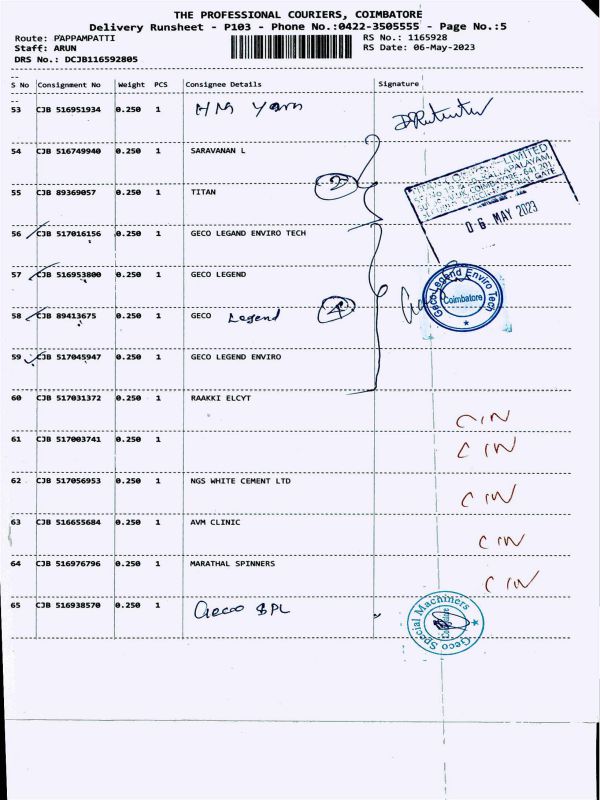 THE PROFESSIONAL COURIERS, COIMBATORE
Delivery Runsheet - P103 - Phone No.:0422-3505555 - Page No.:5
Route: PAPPAMPATTI RS No.: 1165928
Staff: ARUN RS Date: 06-May-2023
DRS No.: DCJB116592805
S No Consignment No Weight PCS Consignee Details Signature
53 CJB 516951934 0.250 1 HNG Yarn
54 CJB 516749940 0.250 1 SARAVANAN L
2
TITAN COMPANY LIMITED
55 CJB 89369057 0.250 1 TITAN
06 MAY 2023
56 CJB 517016156 0.250 1 GECO LEGAND ENVIRO TECH
57 CJB 516953800 0.250 1 GECO LEGEND
Geco Legend Enviro Tech
Coimbatore
58 CJB 89413675 0.250 1 GECO Legend
4
59 CJB 517045947 0.250 1 GECO LEGEND ENVIRO
60 CJB 517031372 0.250 1 RAAKKI ELCYT CIN
61 CJB 517003741 0.250 1 CIN
62 CJB 517056953 0.250 1 NGS WHITE CEMENT LTD CIN
63 CJB 516655684 0.250 1 AVM CLINIC CIN
64 CJB 516976796 0.250 1 MARATHAL SPINNERS CIN
65 CJB 516938570 0.250 1 Geco SPL
Geco Special Machiners